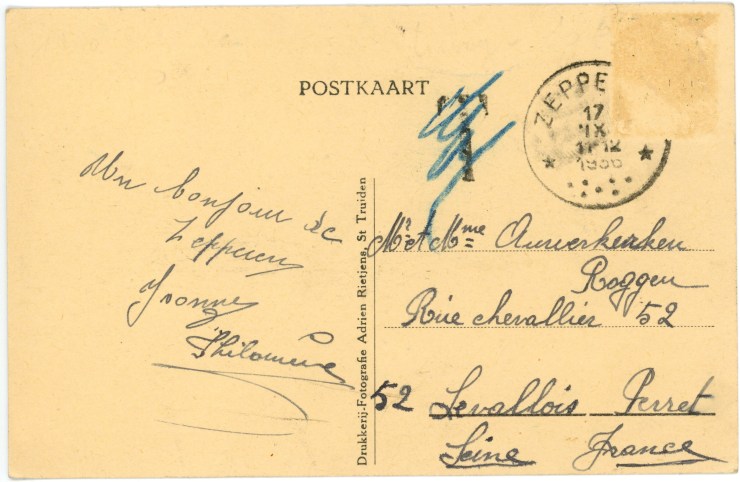 POSTKAART
T
ZEPPE
17
IX
11-12
1936
Un bonjour de
Zepperen
Yvonne
Philomène
Drukkerij-Fotografie Adrien Rietjens, St Truiden
Mr et Mme
Roggen
Rue chevallier 52
52 Levallois Perret
Seine France